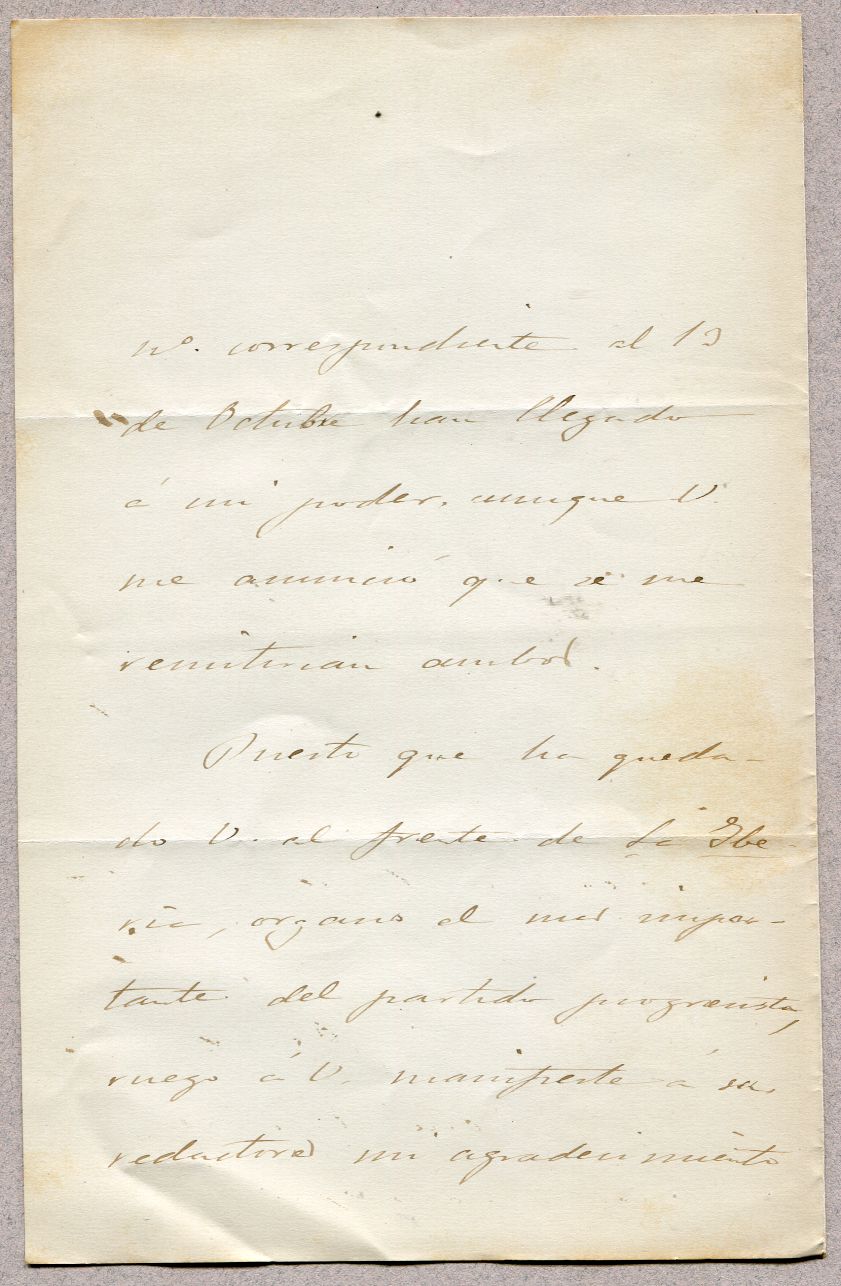 nº. correspondiente al 13
de Octubre han llegado
á mi poder, aunque V.
me anunció que se me
remitirian ambos.
Puesto que ha queda-
do V. al frente de La Ibe-
ria, órgano el mas impor-
tante del partido progresista,
ruego á V. manifieste á sus
redactores mi agradecimiento